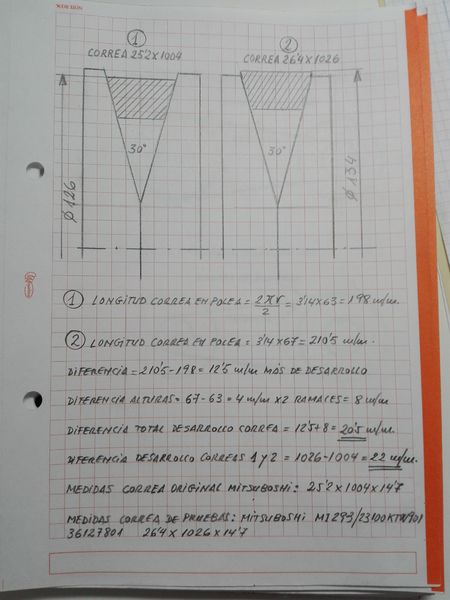 1
2
CORREA 25'2 X 1004
CORREA 26'4 X 1026
30°
30°
Ø 126
Ø 134
1 LONGITUD CORREA EN POLEA = 2πr/2 = 3'14 X 63 = 198 m/m.
2 LONGITUD CORREA EN POLEA = 3'14 X 67 = 210'5 m/m.
DIFERENCIA = 210'5 - 198 = 12'5 m/m MÁS DE DESARROLLO
DIFERENCIA ALTURAS = 67 - 63 = 4 m/m X 2 RAMALES = 8 m/m
DIFERENCIA TOTAL DESARROLLO CORREA = 12'5 + 8 = 20'5 m/m.
DIFERENCIA DESARROLLO CORREAS 1 Y 2 = 1026 - 1004 = 22 m/m.
MEDIDAS CORREA ORIGINAL MITSUBOSHI: 25'2 X 1004 X 14'7
MEDIDAS CORREA DE PRUEBAS: MITSUBOSHI MI293/23100KTW901
36127801 26'4 X 1026 X 14'7